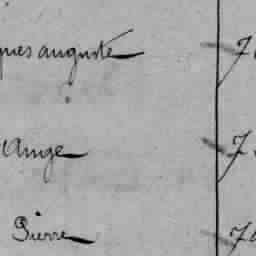 ques auguste 7
Ange 7
Pierre 7